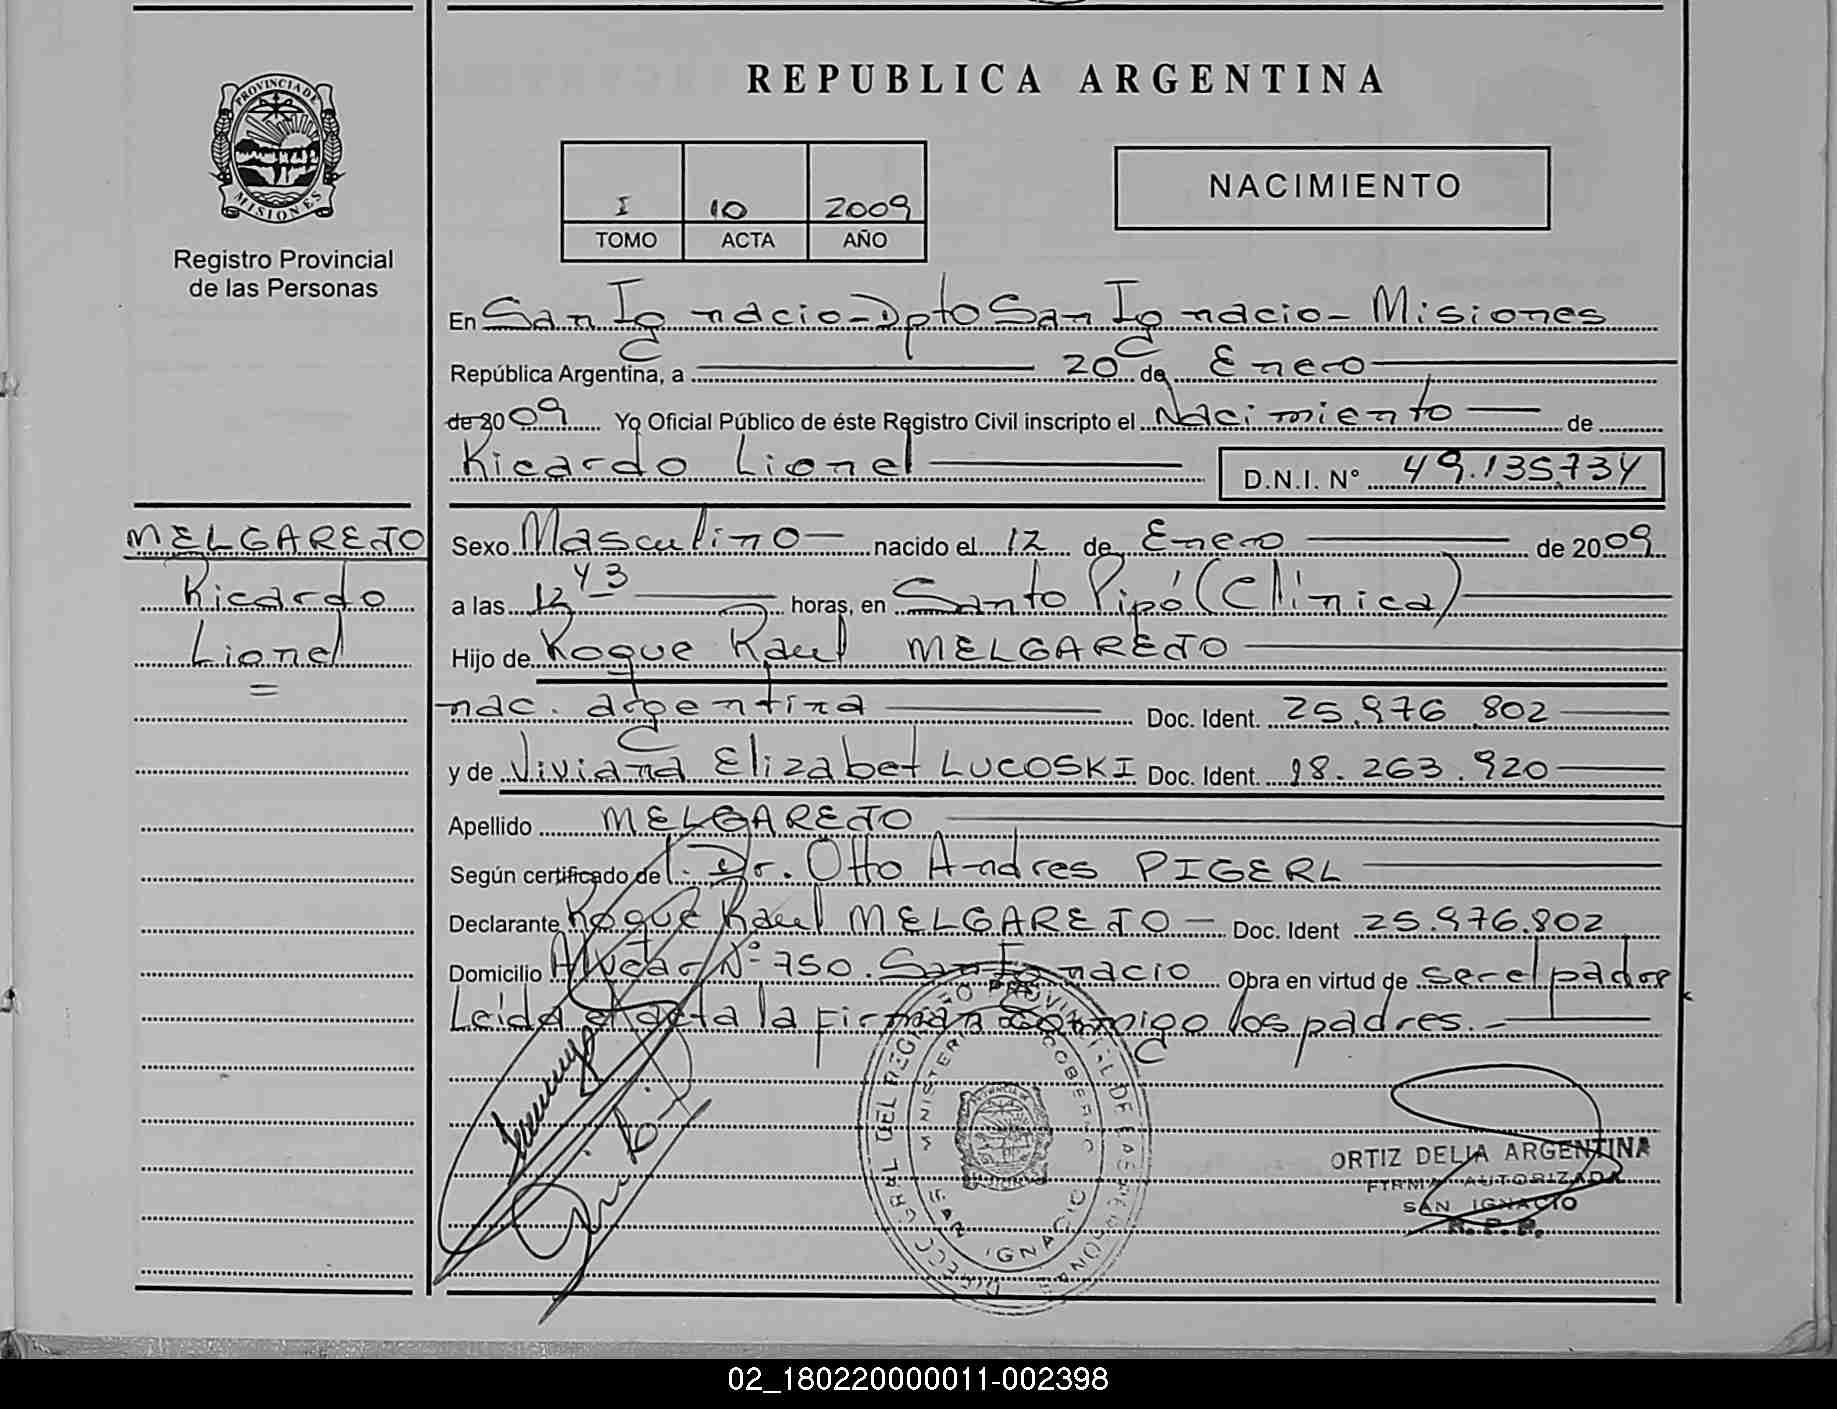 REPUBLICA ARGENTINA
PROVINCIA DE
MISIONES
Registro Provincial
de las Personas
I 10 2009
TOMO ACTA AÑO
NACIMIENTO
En San Ignacio - Dpto San Ignacio - Misiones
República Argentina, a 20 de Enero
de 2009 Yo Oficial Público de éste Registro Civil inscripto el Nacimiento de
Ricardo Lionel D.N.I. N° 49.135.734
MELGAREJO
Ricardo
Lionel
=
Sexo Masculino nacido el 12 de Enero de 2009
a las 12 43 horas, en Santo Pipó (Clínica)
Hijo de Roque Raul MELGAREJO
nac. argentina Doc. Ident. 25.976.802
y de Viviana Elizabet LUCOSKI Doc. Ident. 18.263.920
Apellido MELGAREJO
Según certificado del Dr. Otto Andres PIGERL
Declarante Roque Raul MELGAREJO Doc. Ident 25.976.802
Domicilio N° 750. San Ignacio Obra en virtud de ser el padre
Leida el acta la firman conmigo los padres.-
DIRECC. GRAL. DEL REGISTRO PROVINCIAL DE LAS PERSONAS
MINISTERIO GOBIERNO
SAN IGNACIO
ORTIZ DELIA ARGENTINA
FIRMA AUTORIZADA
SAN IGNACIO
R.P.P.
02_180220000011-002398